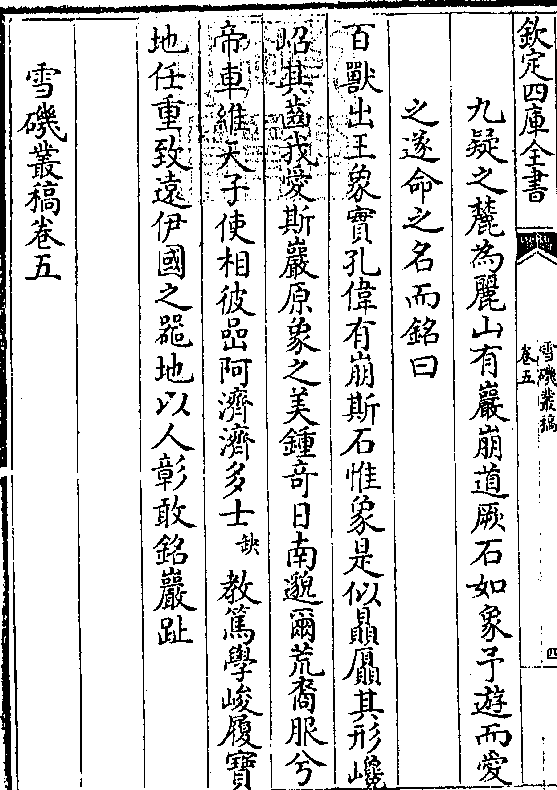 欽定四庫全書
雪磯叢稿
卷五
四
九疑之麓為麗山有巖崩道厥石如象予遊而愛
之遂命之名而銘曰
百獸出王象實孔偉有崩斯石惟象是似贔屭其形巉
岹其齒我愛斯巖原象之美鍾奇日南邈爾荒裔服兮
帝車維天子使相彼嵒阿濟濟多士缺教篤學峻履寶
地任重致遠伊國之器地以人彰敢銘巖趾
雪磯叢稿卷五